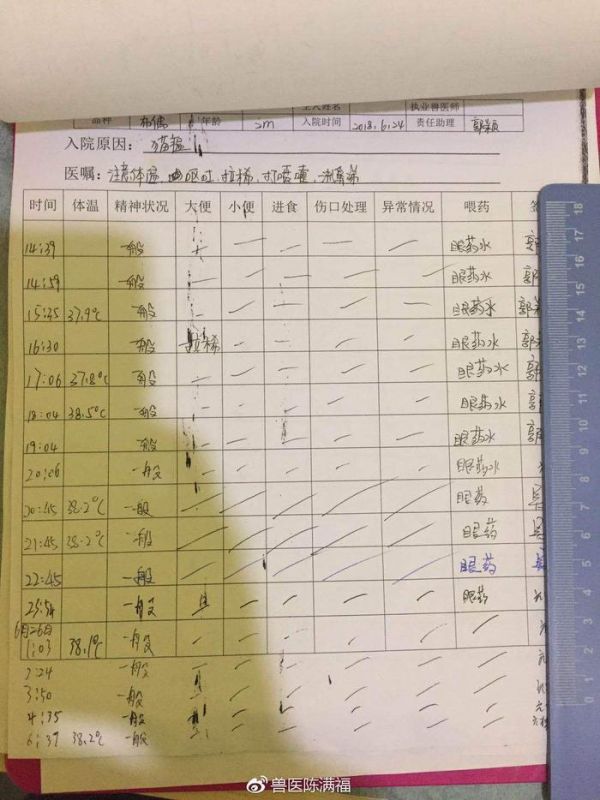 主人姓名 执业兽医师
品种 布偶 年龄 2m 入院时间 2018.6.24 责任助理
入院原因: 猫瘟
医嘱: 注意体温、呕吐、拉稀、打喷嚏、流鼻涕
时间 体温 精神状况 大便 小便 进食 伤口处理 异常情况 喂药
14:39 一般 — — — — — 眼药水
14:59 一般 — — — — — 眼药水
15:25 37.9℃ 一般 — — — — — 眼药水
16:30 一般 拉稀 — — — — 眼药水
17:06 37.8℃ 一般 — — — — — 眼药水
18:04 38.5℃ 一般 — — — — — 眼药水
19:04 一般 — — — — — 眼药水
20:06 一般 — — — — — 眼药水
20:45 38.2℃ 一般 — — — — — 眼药
21:45 38.2℃ 一般 — — — — — 眼药
22:45 一般 — — — — — 眼药
23:54 一般 — — — — 眼药
6月26日
1:03 38.1℃ 一般 — — — — —
2:24 一般 — — — — —
3:50 一般 — — — — —
4:35 一般 — — — — —
6:39 38.2℃ 一般 — — — — —
18 17 16 15 14 13 12 11 10 9 8 7 6 5 4 3 2 1 0
兽医陈满福